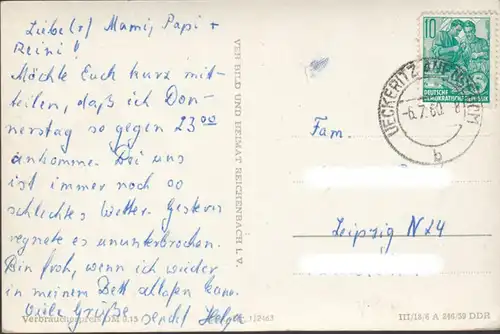 Liebe(r) Mami, Papi +
Reini!
Möchte Euch kurz mit-
teilen, daß ich Don-
nerstag so gegen 23⁰⁰
ankomme. Bei uns
ist immer noch so
schlechtes Wetter. Gestern
regnete es ununterbrochen.
Bin froh, wenn ich wieder
in meinem Bett schlafen kann.
Viele Grüße sendet Helga
Verbraucherpreis DM 0.15
1/2463
VEB BILD UND HEIMAT REICHENBACH I. V.
10
DEUTSCHE
DEMOKRATISCHE REPUBLIK
UECKERITZ AUF USEDOM
-6.7.60
b
Fam.
Leipzig N24
III/18/6 A 246/59 DDR